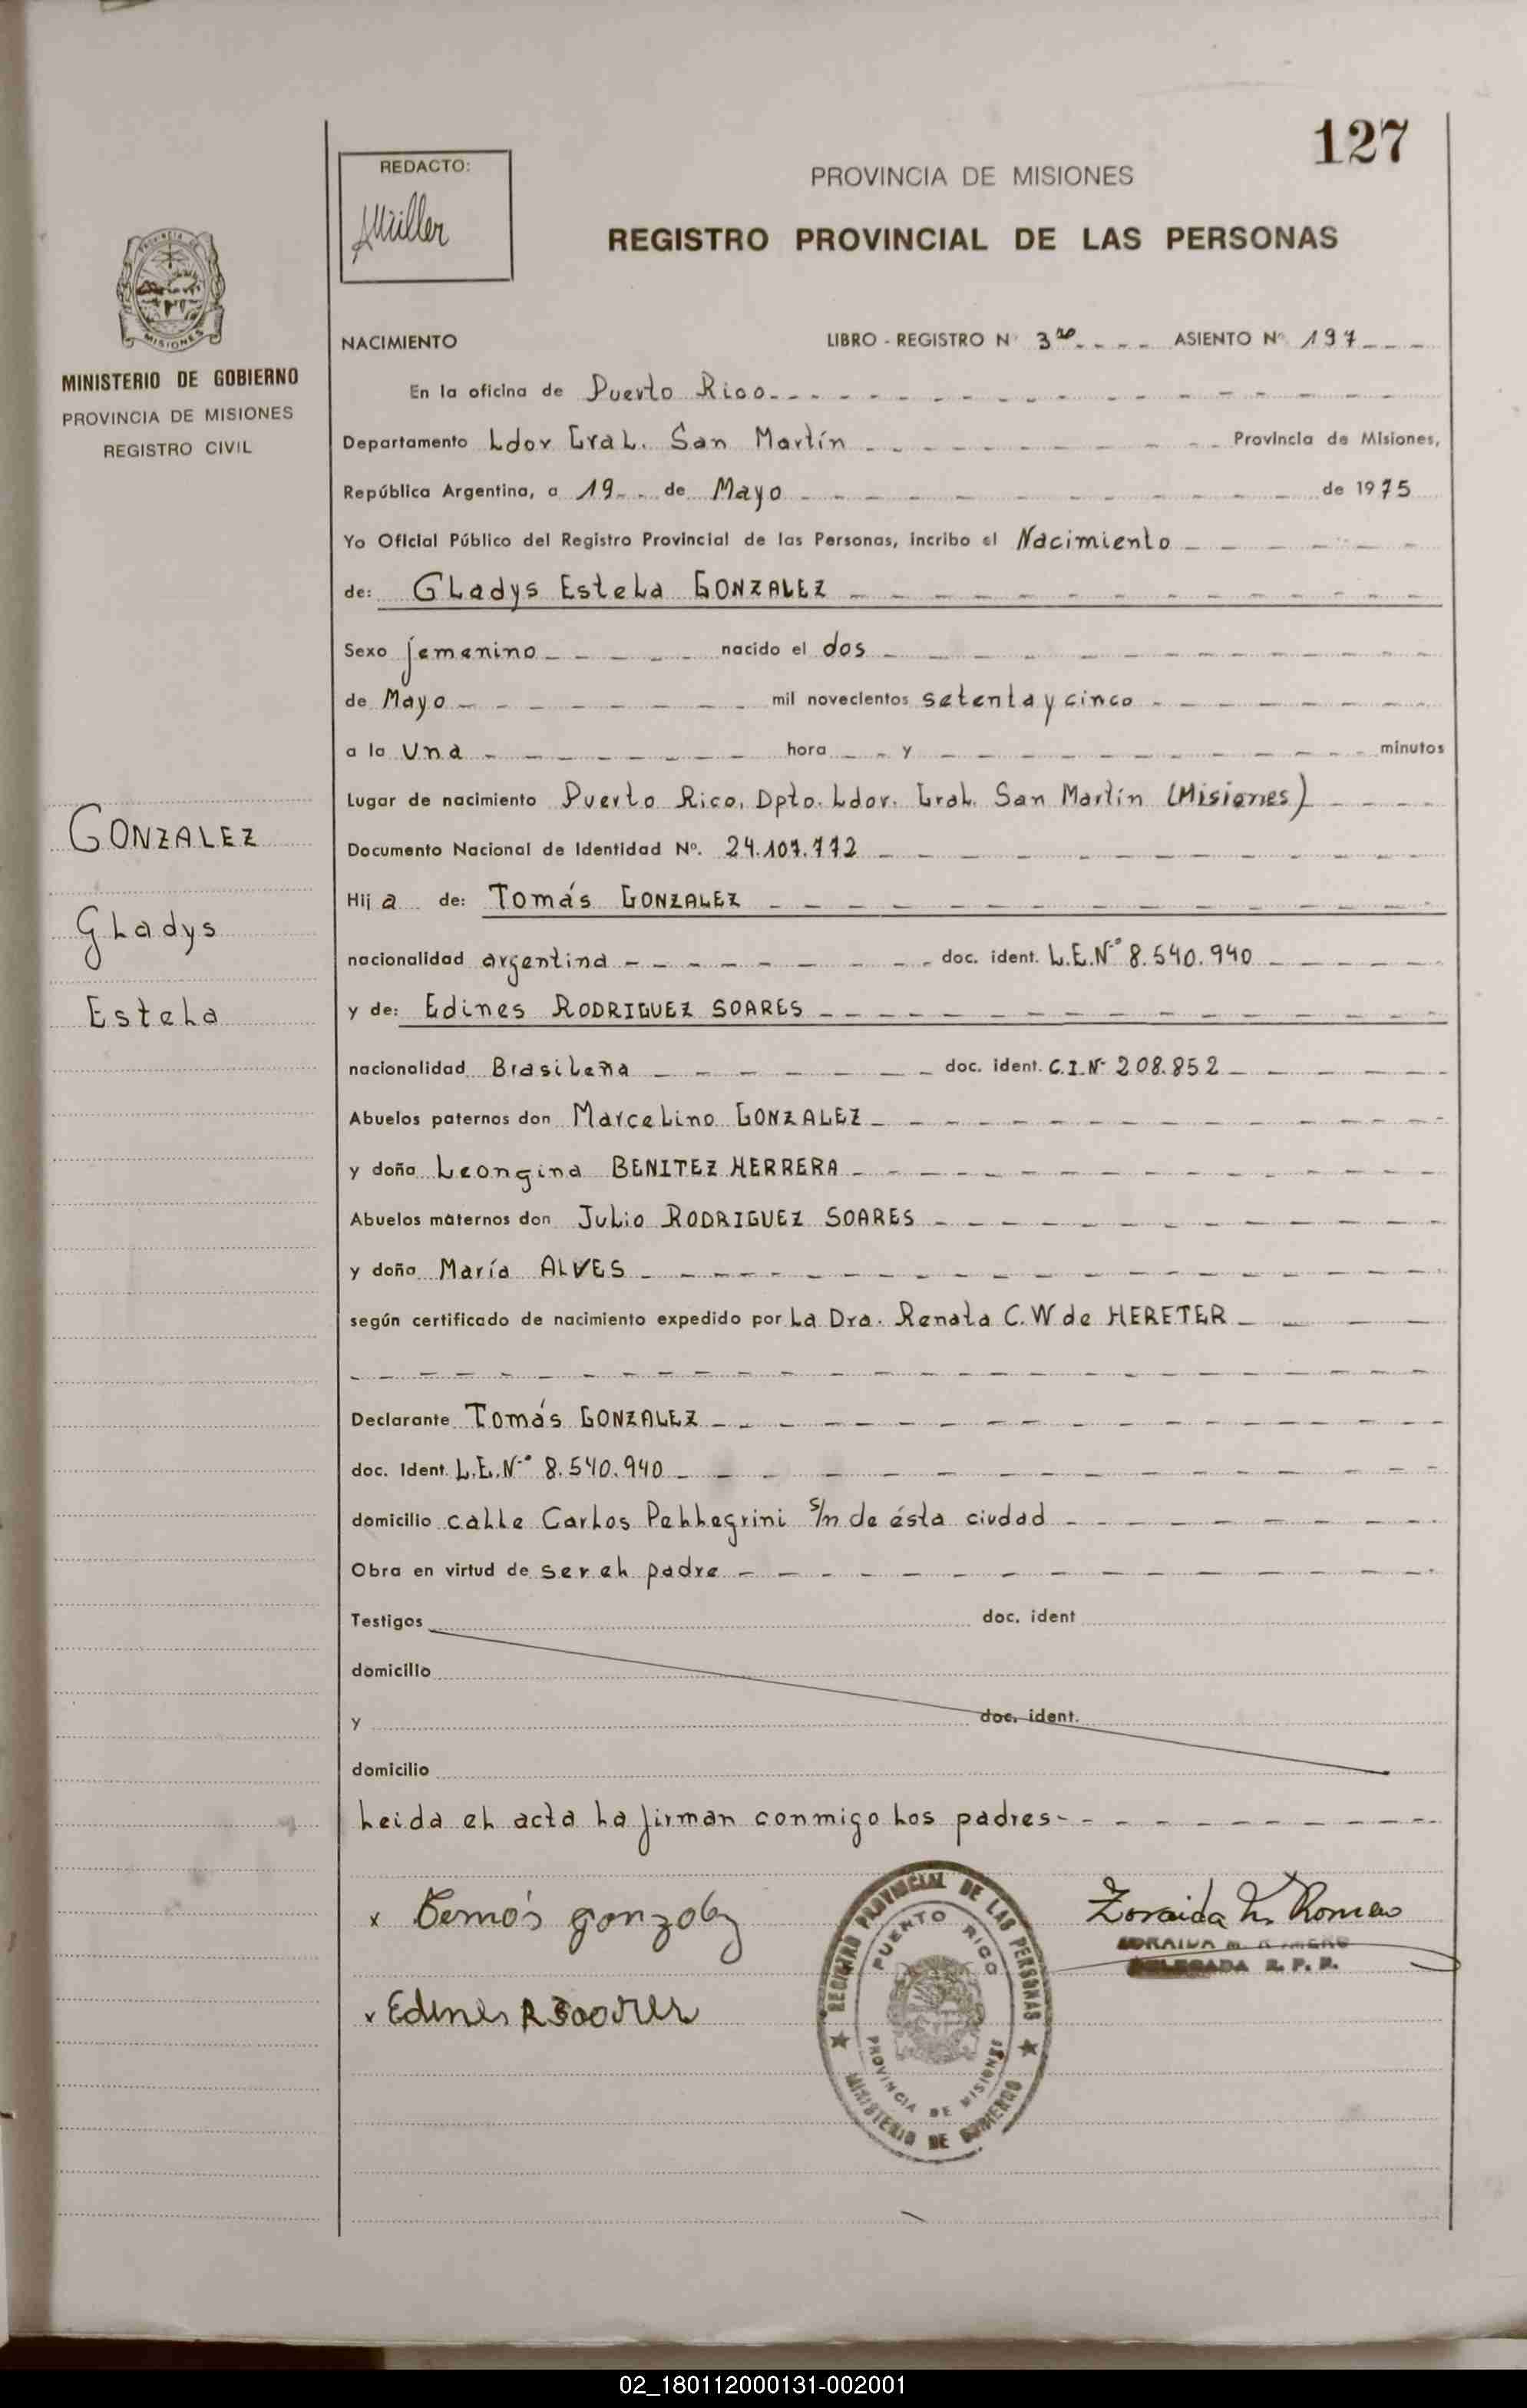 127
REDACTO:
Müller
PROVINCIA DE MISIONES
REGISTRO PROVINCIAL DE LAS PERSONAS
MISIONES
MINISTERIO DE GOBIERNO
PROVINCIA DE MISIONES
REGISTRO CIVIL
NACIMIENTO LIBRO - REGISTRO Nº 3º ASIENTO Nº 197
En la oficina de Puerto Rico
Departamento Ldor Gral. San Martín Provincia de Misiones,
República Argentina, a 19 de Mayo de 1975
Yo Oficial Público del Registro Provincial de las Personas, incribo el Nacimiento
de: Gladys Estela GONZALEZ
Sexo femenino nacido el dos
de Mayo mil novecientos setenta y cinco
a la Una hora y minutos
Lugar de nacimiento Puerto Rico, Dpto. Ldor. Gral. San Martín (Misiones)
Documento Nacional de Identidad Nº. 24.107.772
Hija de: Tomás GONZALEZ
nacionalidad argentina doc. ident. L.E.Nº 8.540.940
y de: Edines RODRIGUEZ SOARES
nacionalidad Brasileña doc. ident. C.I.Nº 208.852
Abuelos paternos don Marcelino GONZALEZ
y doña Leongina BENITEZ HERRERA
Abuelos maternos don Julio RODRIGUEZ SOARES
y doña María ALVES
según certificado de nacimiento expedido por La Dra. Renata C. W de HERETER
Declarante Tomás GONZALEZ
doc. Ident. L.E.Nº 8.540.940
domicilio calle Carlos Pellegrini s/n de ésta ciudad
Obra en virtud de ser el padre
Testigos doc. ident
domicilio
y doc. ident.
domicilio
Leida el acta la firman conmigo los padres
GONZALEZ
Gladys
Estela
x Tomás gonzalez
x Edines R Soares
REGISTRO PROVINCIAL DE LAS PERSONAS
PUERTO RICO
PROVINCIA DE MISIONES
MINISTERIO DE GOBIERNO
Zoraida M. Romero
ZORAIDA M. ROMERO
DELEGADA R. P. P.
02_180112000131-002001